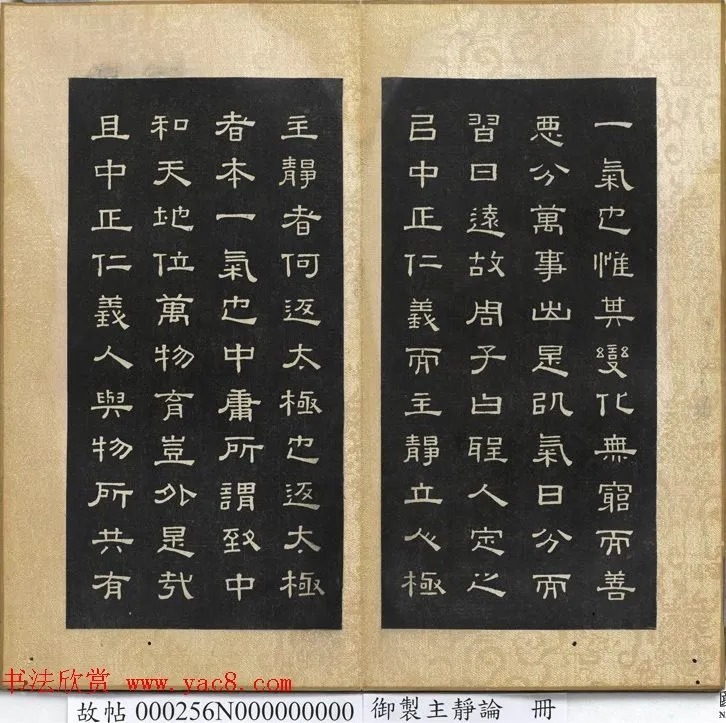 一氣也惟其變化無窮而善
惡分萬事出是以氣日分而
習日遠故周子曰聖人定之
以中正仁義而主靜立人極
主靜者何返太極也返太極
者本一氣也中庸所謂致中
和天地位萬物育豈外是哉
且中正仁義人與物所共有
书法欣赏 www.yac8.com
故帖 000256N000000000 御製主靜論 冊